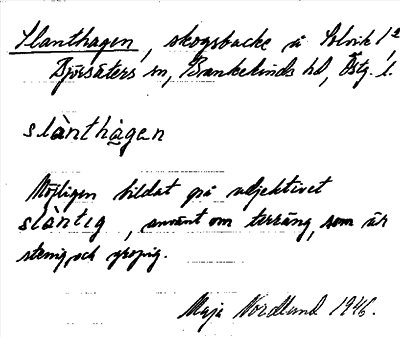 Slanthagen, skogsbacke å Solvik 1²
Björsäters sn, Bankekinds hd, Östg. l.
slànthàgen
Möjligen bildat på adjektivet
slàntig, använt om terräng, som är
stenig och gropig.
Maja Nordlund 1946.